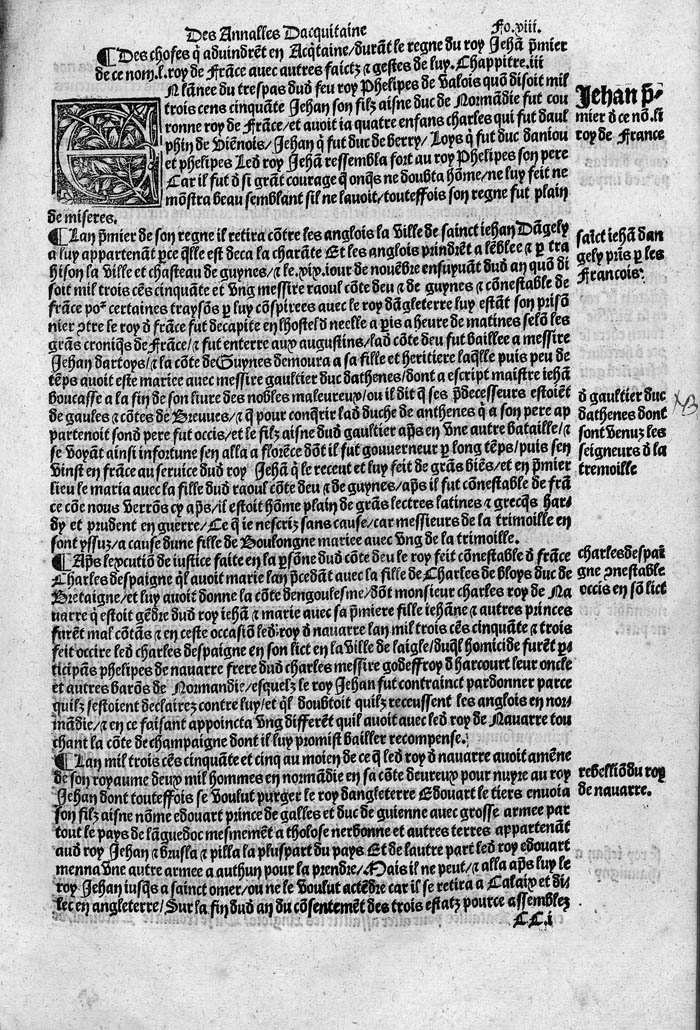 Des Annalles Dacquitaine
Fo.viii.
¶Des choses q̃ aduindrẽt en Acq̃taine/durãt le regne du roy Jehã p̃mier
de ce nom.l.roy de Frãce avec autres faictz ⁊ gestes de luy. Chappitre.iii
EN lãnee du trespas dud feu roy Phelipes de Valois quõ disoit mil
trois cens cinquãte Jehan son filz aisne duc de Normãdie fut cou
ronne roy de Frãce/et avoit ia quatre enfans charles qui fut daul
phin de Viẽnois/Jehan q̃ fut duc de berry/Loys q̃ fut duc daniou
et phelipes Led roy Jehã ressembla fort au roy Phelipes son pere
Car il fut d̃ si grãt courage q̃ onq̃s ne doubta hõme/ne luy feit ne
mõstra beau semblant sil ne lavoit/touteffois son regne fut plain
de miseres.
¶Lan p̃mier de son regne il retira cõtre les anglois la Ville de sainct iehan Dãgely
a luy appartenant p̱ce q̃lle est deca la charãte Et les anglois prindrẽt a lẽblee ⁊ p̱ tra
hison la Ville et chasteau de guynes/⁊ le.xix.iour de nouẽbre ensuyuãt dud an quõ di
soit mil trois cẽs cinquãte et Vng messire raoul cõte deu ⁊ de guynes ⁊ cõnestable de
frãce poꝰ certaines traysõs p̱ luy cõspirees avec le roy dãgleterre luy estãt son prisõ
nier ↄtre le roy d̃ frãce fut decapite en lhostel d̃ neelle a p̱is a heure de matines selõ les
grãs croniq̃s de Frãce/⁊ fut enterre aux augustins/lad cõte deu fut baillee a messire
Jehan dartoys/⁊ la cõte de Guynes demoura a sa fille et heritiere laq̃lle puis peu de
tẽps auoit este mariee avec messire gaultier duc dathenes/dont a escript maistre iehã
boucasse a la fin de son livre des nobles maleureux/ou il dit q̃ ses p̃decesseurs estoiẽt
de gaules ⁊ cõtes de Breuues/⁊ q̃ pour conq̃rir lad duche de anthenes q̃ a son pere ap
partenoit sond pere fut occis/et le filz aisne dud gaultier ap̃s en Vne autre bataille/⁊
se Voyãt ainsi infortune sen alla a florẽce dõt il fut gouuerneur p̱ long tẽps/puis sen
Vinst en frãce au service dud roy Jehã q̃ le recent et luy feit de grãs biẽs/et en p̃mier
lieu le maria avec la fille dud raoul cõte deu ⁊ de guynes/ap̃s il fut cõnestable de frã
ce cõe nous Verrõs cy ap̃s/il estoit hõme plain de grãs lectres latines ⁊ grecq̃s har/
dy et prudent en guerre/Ce q̃ ie nescriz sans cause/car messieurs de la trimoille en
sont yssuz/a cause dune fille de Boulongne mariee avec Vng de la trimoille.
¶Ap̃s lexecutiõ de iustice faite en la p̱sõne dud cõte deu le roy feit cõnestable d̃ frãce
Charles despaigne q̃l auoit marie lan p̃cedãt avec la fille de Charles de bloys duc de
Bretaigne/et luy auoit donne la cõte dengoulesme/dõt monsieur charles roy de Na
uarre q̃ estoit gẽdre dud roy iehã ⁊ marie avec sa p̃miere fille iehãne et autres princes
furẽt mal cõtãs ⁊ en ceste occasiõ led roy d̃ nauarre lan mil trois cẽs cinquãte ⁊ trois
feit occire led charles despaigne en son lict en la Ville de laigle/duq̃l homicide furẽt p̱/
ticipãs phelipes de nauarre frere dud charles messire godeffroy d̃ harcourt leur oncle
et autres barõs de Normandie/esquelz le roy Jehan fut contrainct pardonner parce
quilz sestoient declairez contre luy/et q̃l doubtoit quilz receussent les anglois en nor/
mãdie/⁊ en ce faisant appoincta Vng differẽt quil auoit avec led roy de Nauarre tou
chant la cõte de champaigne dont il luy promist bailler recompense.
¶Lan mil trois cẽs cinquãte et cinq au moien de ce q̃ led roy d̃ nauarre auoit amẽne
de son royaume deux mil hommes en normãdie en sa cõte deureux pour nuyre au roy
Jehan dont touteffois se Voulut purger le roy dangleterre Edouart le tiers enuoia
son filz aisne nõme edouart prince de galles et duc de guienne avec grosse armee par
tout le pays de lãguedoc mesmemẽt a tholose nerbonne et autres terres appartenãt
aud roy Jehan ⁊ brusla ⁊ pilla la pluspart du pays Et de lautre part led roy edouart
menna Vne autre armee a authun pour la prendre/Mais il ne peut/⁊ alla ap̃s luy le
roy Jehan iusq̃s a sainct omer/ou ne le Voulut actẽdre car il se retira a Calaix et di/
lec en angleterre/Sur la fin dud an du cõsentemẽt des trois estatz pource assemblez
CC.i
Jehan p̃/
mier d̃ ce nõ.li
roy de France
saict iehã dan
gely prīs p̱ les
Francois.
d̃ gaultier duc
dathenes dont
sont venuz les
seigneurs d̃ la
tremoille
charles despai
gne ↄnestable
occis en sõ lict
rebelliõ du roy
de nauarre.